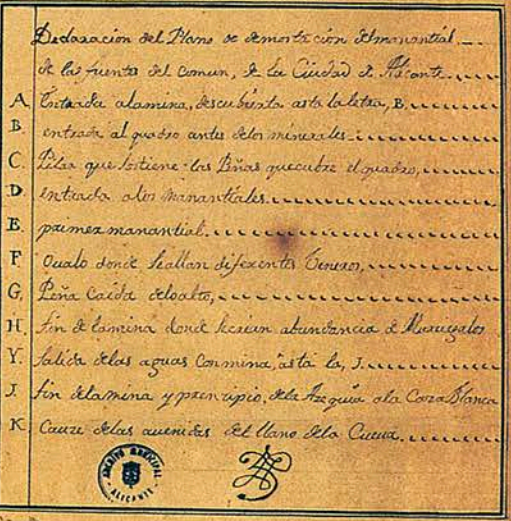 Declaracion del Plano de demostrcion del manantial
de las fuentes del Comun, de la Ciudad de Alicante
A, Entrada alamina, descubierta asta la letra, B.
B. entrada al quadro antes delos minerales
C. Pilar que sostiene las Peñas quecubre el quadro,
D. entrada alos manantiales.
E. primer manantial.
F. Oualo donde sehallan diferentes
G, Peña Caida deloalto,
H. fin de lamina donde secrian abundancia de
Y. Salida delas aguas Conmina, asta la, J.
J. fin delamina y prenzipio, dela Azequia ala Caza Blanca
K. Cauze delas auenidas del llano dela Cueua.
ARCHIVO MUNICIPAL
ALICANTE